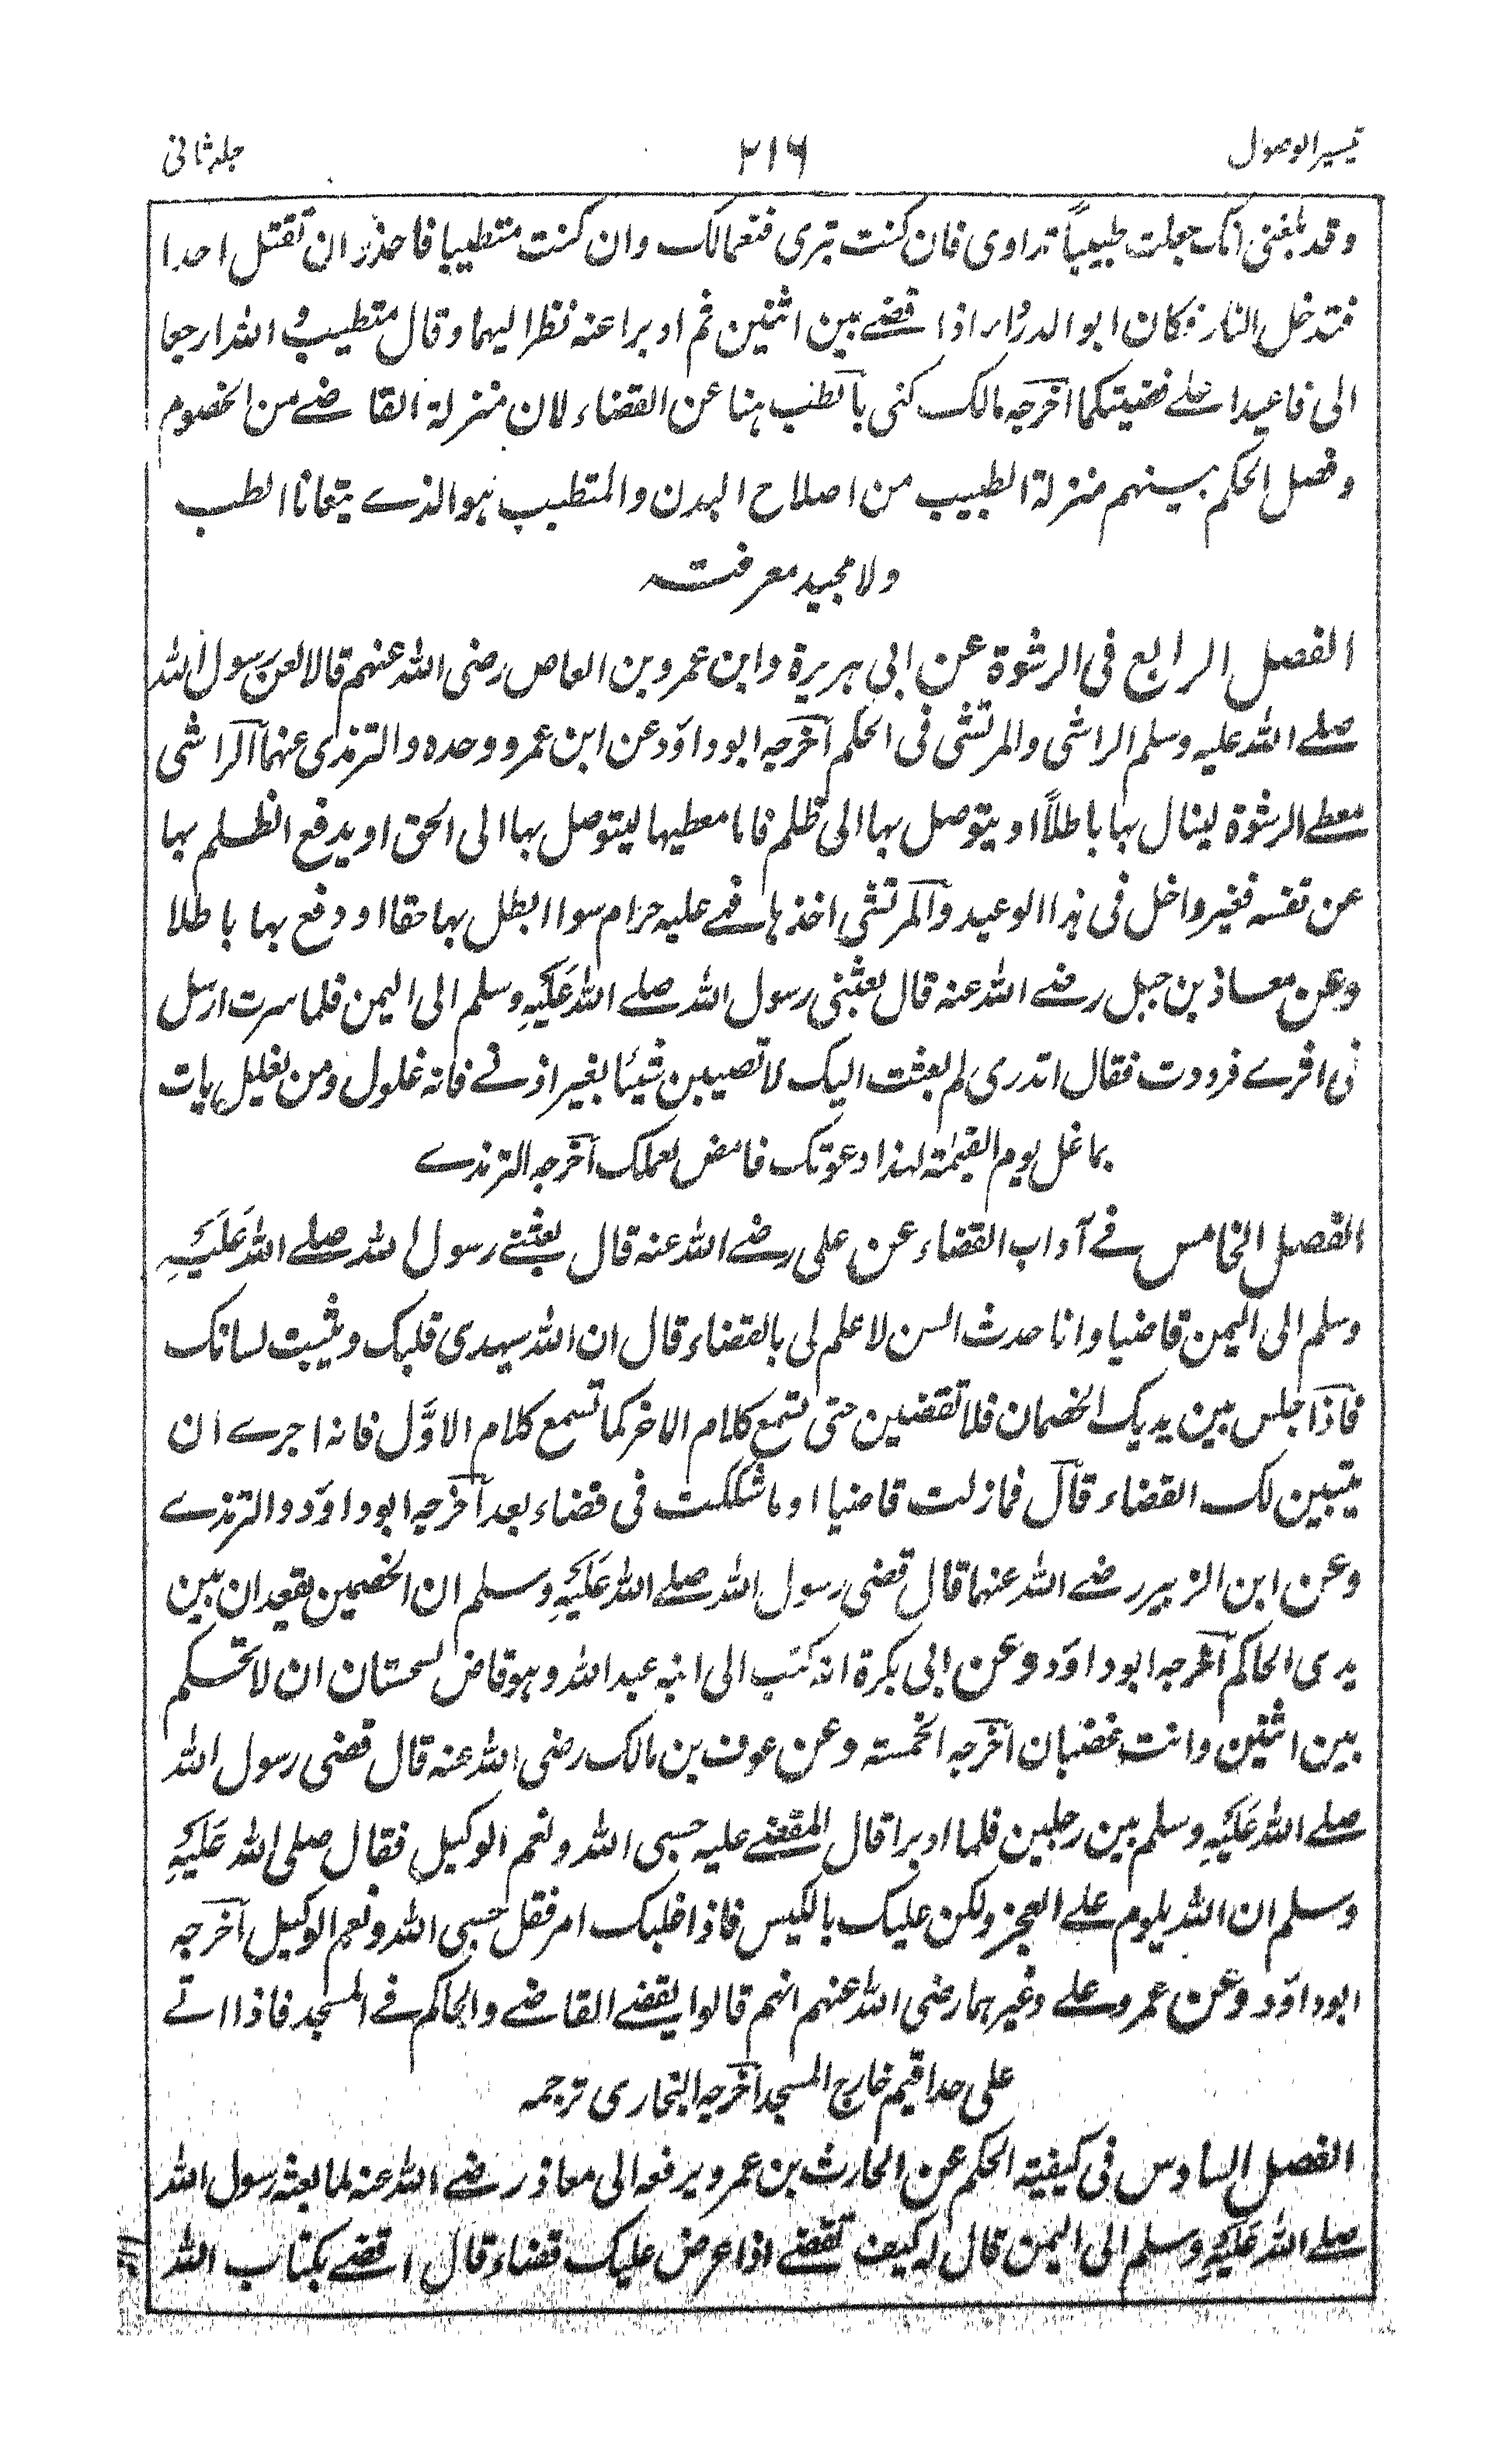 تيسير الوصول
٢١٦
جلد ثانی
وقد بلغنی انک جعلت طبيباً تداوی فان کنت تبری فنعمالک وان کنت متطببا فاحذر ان تقتل احدا
فتدخل النار وکان ابو الدرداء اذا قضے بين اثنين ثم ادبرا عنه نظر اليهما وقال متطبب والله ارجعا
الی فاعيدا علے قضيتکما اخرجه مالک کنی بالطب هنا عن القضاء لان منزلة القاضے من الخصوم
وفصل الحکم بينهم منزلة الطبيب من اصلاح البدن والمتطبب هو الذے يتعانا الطب
ولا يجيد معرفته
الفصل الرابع فی الرشوة عن ابی هريرة وابن عمرو بن العاص رضی الله عنهم قالا لعن رسول الله
صلے الله عليه وسلم الراشی والمرتشی فی الحکم اخرجه ابو داؤد عن ابن عمرو وحده والترمذی عنهما الراشی
معطے الرشوة لينال بها باطلاً او يتوصل بها الی ظلم فاما معطيها ليتوصل بها الی الحق او يدفع الظلم بها
عن نفسه فغير داخل فی هذا الوعيد والمرتشی اخذها فے عليه حرام سوا ابطل بها حقا او دفع بها باطلا
وعن معاذ بن جبل رضے الله عنه قال بعثنی رسول الله صلے الله عَلَيْهِ وسلم الی اليمن فلما سرت ارسل
فی اثرے فرددت فقال اتدری لم بعثت اليک لا تصيبن شيئا بغير اذنے فانه غلول ومن يغلل يات
بما غل يوم القيمة لهذا دعوتک فامض لعملک اخرجه الترمذے
الفصل الخامس فے آداب القضاء عن علی رضے الله عنه قال بعثنے رسول الله صلے الله عَلَيْهِ
وسلم الی اليمن قاضيا وانا حدث السن لا علم لی بالقضاء قال ان الله سيهدی قلبک ويثبت لسانک
فاذا جلس بين يديک الخصمان فلا تقضين حتی تسمع کلام الاخر کما تسمع کلام الاوَّل فانه احرے ان
يتبين لک القضاء قال فمازلت قاضيا او ما شککت فی قضاء بعد اخرجه ابو داؤد والترمذے
وعن ابن الزبير رضے الله عنهما قال قضی رسول الله صلے الله عَلَيْهِ وسلم ان الخصمين يقعدان بين
يدی الحاکم اخرجه ابو داؤد وعن ابی بکرة انه کتب الی ابنه عبد الله وهو قاض لسجستان ان لا تحکم
بين اثنين وانت غضبان اخرجه الخمسة وعن عوف بن مالک رضی الله عنه قال قضی رسول الله
صلے الله عَلَيْهِ وسلم بين رجلين فلما ادبرا قال المقضے عليه حسبی الله ونعم الوکيل فقال صلی الله عَلَيْهِ
وسلم ان الله يلوم علے العجز ولکن عليک بالکيس فاذا غلبک امر فقل حسبی الله ونعم الوکيل اخرجه
ابو داؤد وعن عمر وعلے وغيرهما رضی الله عنهم انهم قالوا يقضے القاضے والحاکم فے المسجد فاذا اتے
علی حد اقيم خارج المسجد اخرجه البخاری ترجمه
الفصل السادس فی کيفية الحکم عن الحارث بن عمرو يرفعه الی معاذ رضے الله عنه لما بعثه رسول الله
صلے الله عَلَيْهِ وسلم الی اليمن قال له کيف تقضے اذا عرض عليک قضاء قال اقضے بکتاب الله